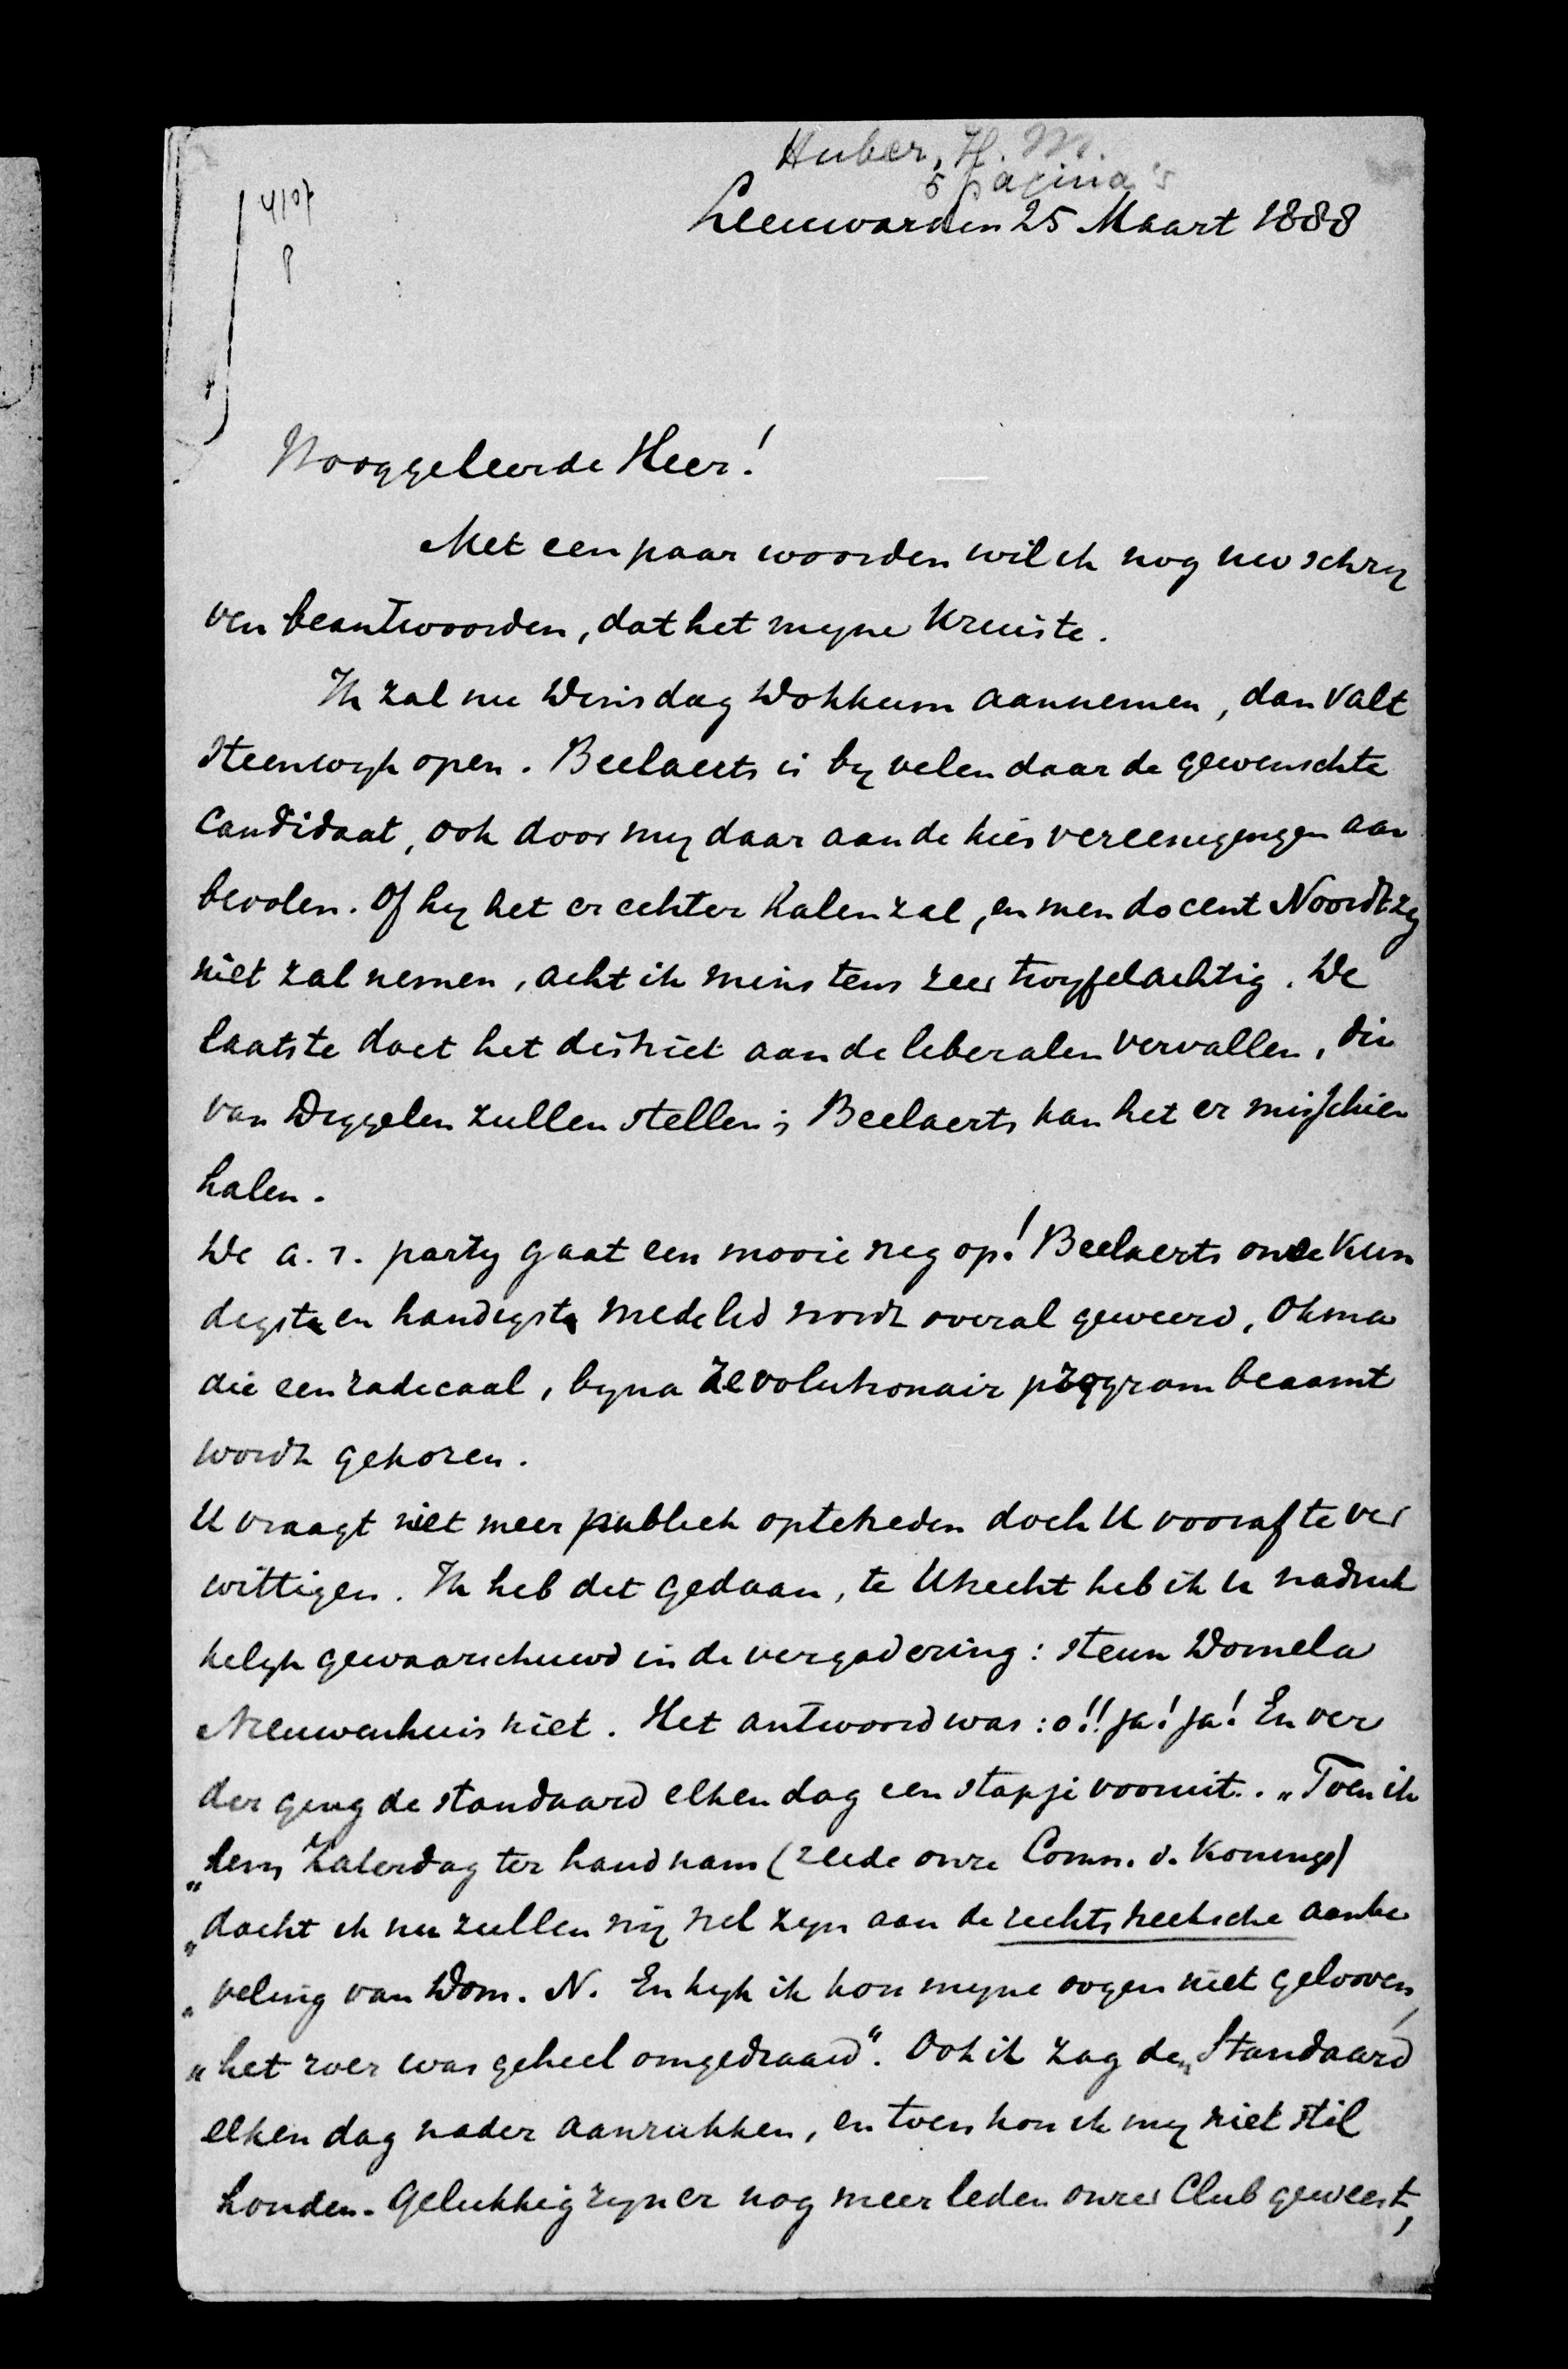 Huber, H. M.
5 pagina's
Leeuwarden 25 Maart 1888
Hooggeleerde Heer!
Met een paar woorden wil ik nog uw schry
ven beantwoorden, dat het myne kruiste.
Ik zal nu Dinsdag Dokkum aannemen, dan valt
Steenwyk open. Beelaerts is by velen daar de gewenschte
candidaat, ook door my daar aan de kiesvereenigingen aan
bevolen. Of hy het er echter halen zal, en men docent Noordtzy
niet zal nemen, acht ik minstens zeer twyfelachtig. De
laatste doet het district aan de liberalen vervallen, die
van Diggelen zullen stellen; Beelaerts kan het er misschien
halen.
De a. r. party gaat een mooie weg op! Beelaerts onze kun
digste en handigste medelid wordt overal geweerd, Okma
die een radicaal, byna revolutionair program beaamt
wordt gekozen.
U vraagt niet meer publiek optetreden doch U vooraf te ver
wittigen. Ik heb dit gedaan, te Utrecht heb ik U nadruk
kelyk gewaarschuwd in de vergadering: steun Domela
Nieuwenhuis niet. Het antwoord was: o!! ja! ja! En ver
der ging de standaard elken dag een stapje vooruit. „Toen ik
„hem Zaterdag ter hand nam (zeide onze Comm. d. Konings)
„dacht ik nu zullen wy wel zyn aan de rechtstreeksche aanbe
„veling van Dom. N. En kyk ik kon myne oogen niet gelooven,
„het roer was geheel omgedraaid“. Ook ik zag den Standaard
elken dag nader aanrukken, en toen kon ik my niet stil
houden. Gelukkig zyn er nog meer leden onzer Club geweest,